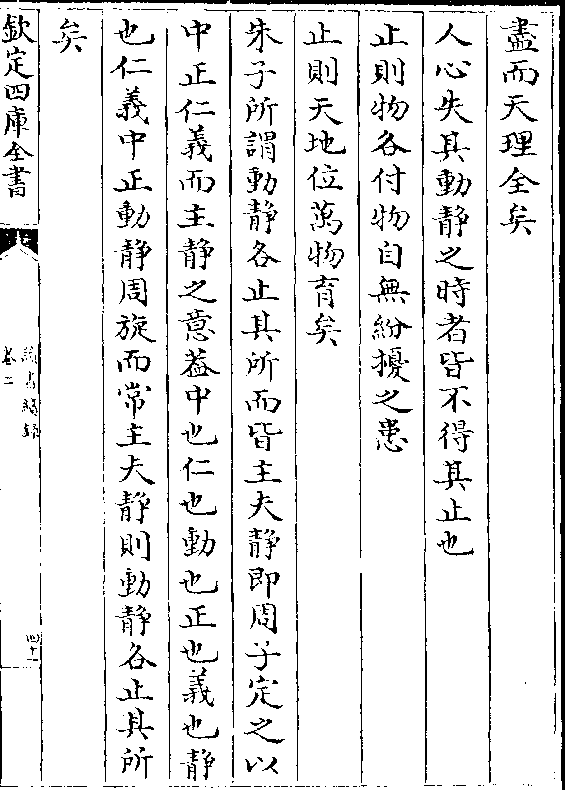 盡而天理全矣
人心失其動静之時者皆不得其止也
止則物各付物自無紛擾之患
止則天地位萬物育矣
朱子所謂動静各止其所而皆主夫静即周子定之以
中正仁義而主静之意葢中也仁也動也正也義也静
也仁義中正動静周旋而常主夫静則動静各止其所
矣
欽定四庫全書
讀書續録
卷二
四十一